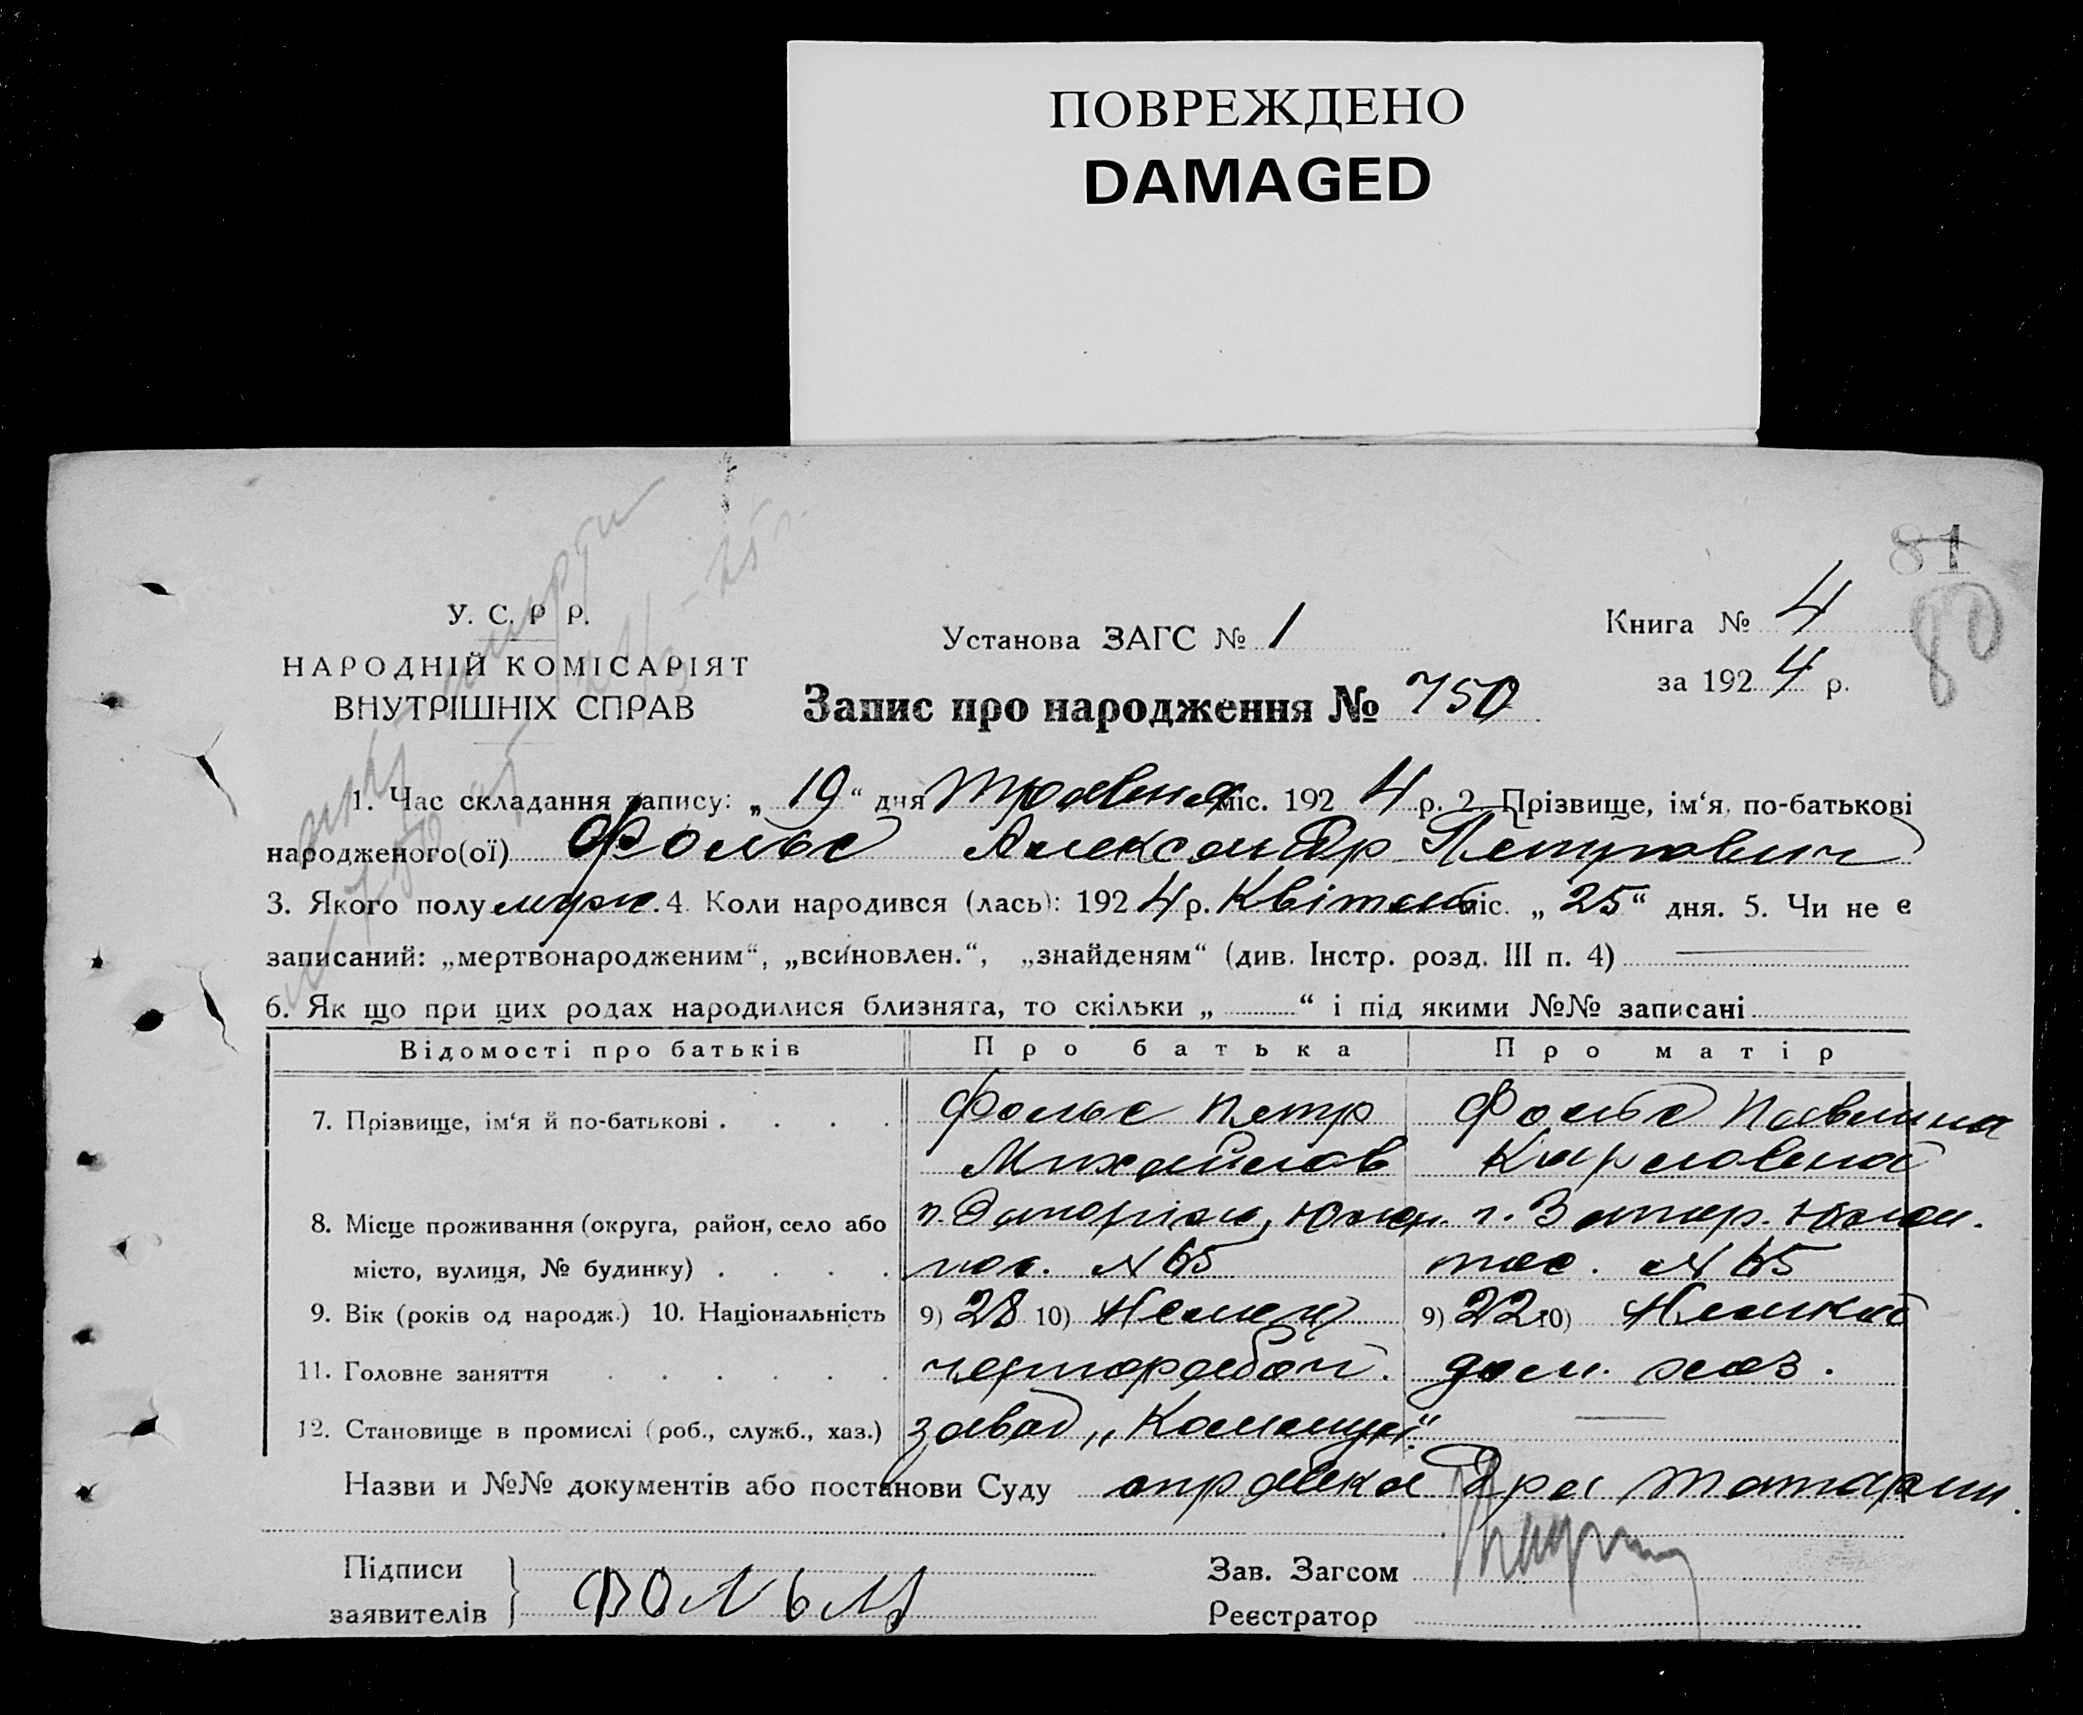 ПОВРЕЖДЕНО
DAMAGED
81
80
У. С. Р Р.
НАРОДНІЙ КОМІСАРІЯТ
ВНУТРІШНІХ СПРАВ
Установа ЗАГС № 1
Книга № 4
за 1924 р.
Запис про народження № 750
1. Час складання запису: „ 19 “ дня Травня міс. 192 4 р. 2. Прізвище, ім‘я, по-батькові
народженого(ої) Фольс Александр Петрович
3. Якого полу муж. 4. Коли народився (лась): 192 4 р. Квітень міс. „ 25 “ дня. 5. Чи не є
записаний: „мертвонародженим“, „всиновлен.“, „знайденям“ (див. Інстр. розд. III п. 4)
6. Як що при цих родах народилися близнята, то скільки „ “ і під якими №№ записані
Відомості про батьків Про батька Про матір
7. Прізвище, ім‘я й по-батькові . . . . Фольс Петр Фольс Павлина
Михайлов Карловна
8. Місце проживання (округа, район, село або г. Запоріжж, Южн. г. Запор. Южн.
місто, вулиця, № будинку) . . . . пос. № 65 пос. № 65
9. Вік (років од народж.) 10. Національність 9) 28 10) Немец 9) 22 10) Немка
11. Головне заняття . . . . . . чернорабоч. дом. хоз.
12. Становище в промислі (роб., служб., хаз.) завод „Комунар“
Назви и №№ документів або постанови Суду справка
Підписи
заявителів
Зав. Загсом
Реєстратор